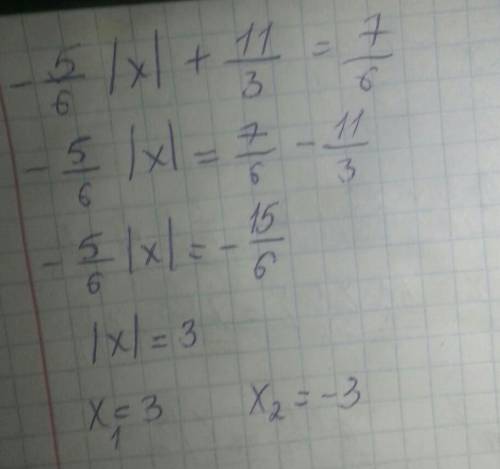 - 5/6 |x| + 11/3 = 7/6
- 5/6 |x| = 7/6 - 11/3
- 5/6 |x| = - 15/6
|x| = 3
x₁ = 3 x₂ = -3